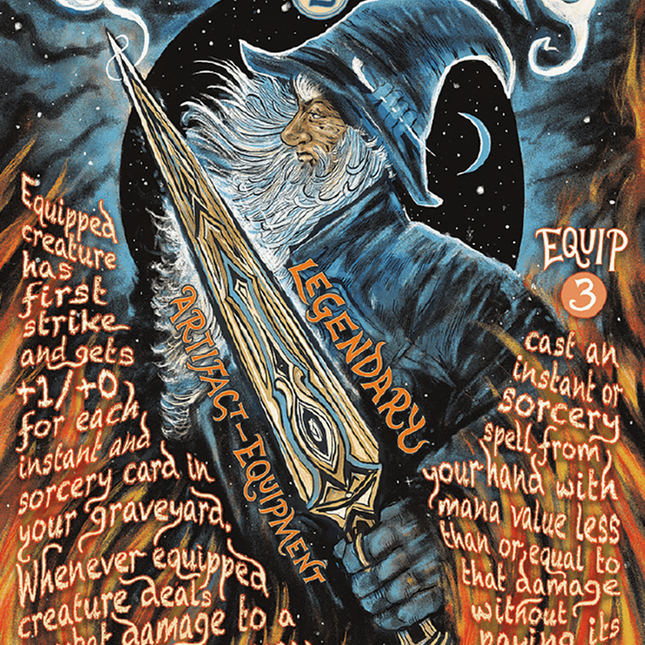 2
Equipped
creature
has
first
strike
and gets
+1/+0
for each
instant and
sorcery card in
your graveyard.
Whenever equipped
creature deals
damage to a
LEGENDARY
ARTIFACT–EQUIPMENT
EQUIP
3
cast an
instant or
sorcery
spell from
your hand with
mana value less
than or equal to
that damage
without
paying its